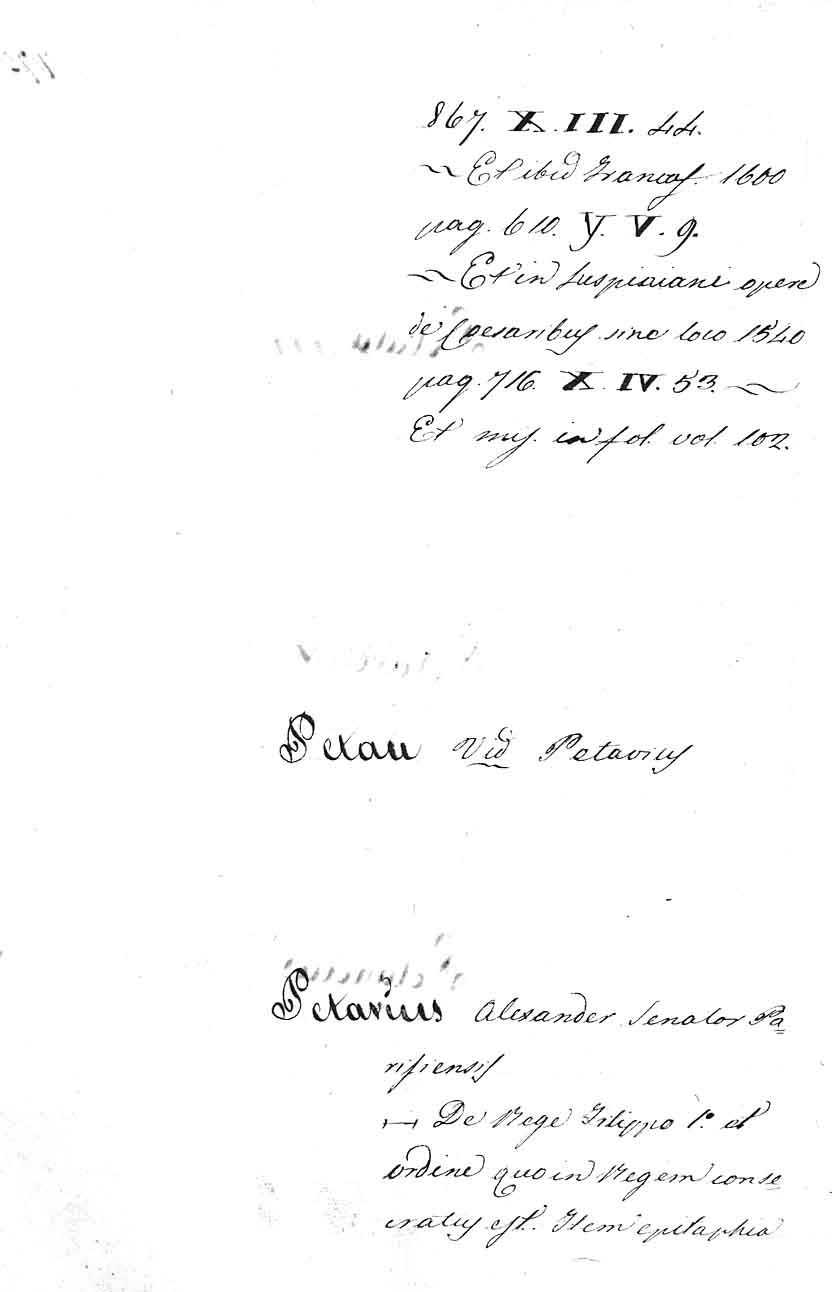 867. X. III. 44.
~ Et ibid Francof. 1600
pag. 610. Y. V. 9.
~ Et in Cuspiniani opere
de Caesaribus sine loco 1540
pag. 716. X. IV. 53. ~
Et ms. in fol. vol. 102.
Petau Vid Petavius
Petavius Alexander Senator Pa=
risiensis
⟼ De Rege Filippo 1.º et
ordine quo in Regem conse=
cratus est. Item epitaphia